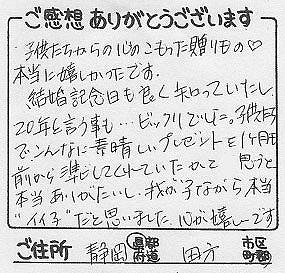 ご感想ありがとうございます
・子供たちからの心のこもった贈りもの♡
本当に嬉しかったです。
結婚記念日も良く知っていたし、
20年と言う事も…ビックリでした。子供が
こんなに素晴しいプレゼントを1ヶ月も
前から準じてくれていたかと思うと
本当ありがたいし、我が子ながら本当
"イイ子"だと思いました。心が嬉しーです
ご住所 静岡 都道府県 田方 市区町郡